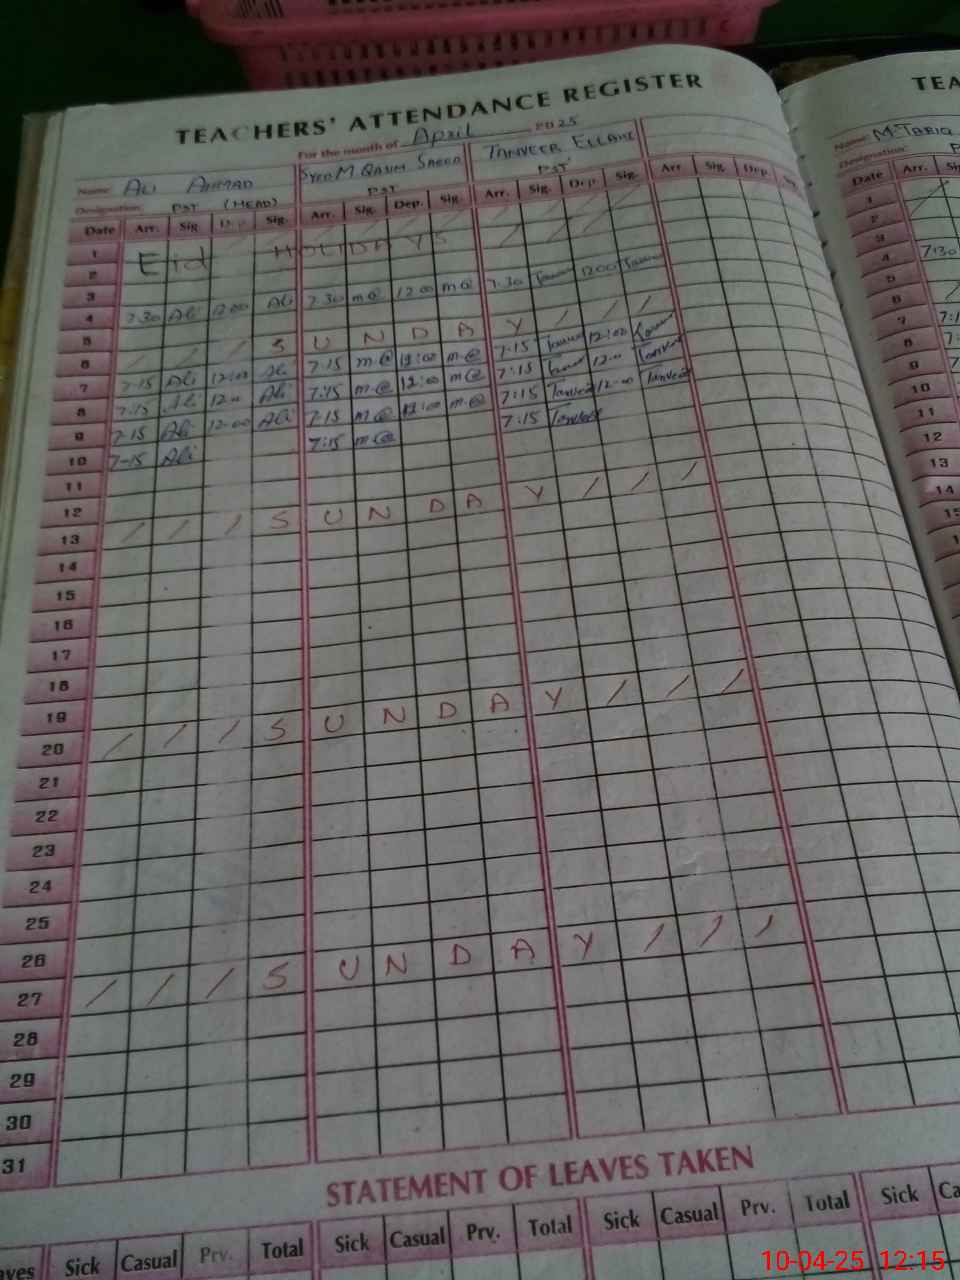 TEACHERS' ATTENDANCE REGISTER
For the month of April 2025
Name: ALI AHMAD SYED M. QASIM TANVEER ELLAHI
Designation: PST (HEAD) PST PST
Date Arr. Sig. Dep. Sig. Arr. Sig. Dep. Sig. Arr. Sig. Dep. Sig. Arr. Sig. Dep.
1
2 Eid HOLIDAYS
3
4 7.30 Ali 12.00 Ali 7.30 m@ 12 00 m@ 7.30 1200
5
6 / / / S U N D A Y / / /
7 7-15 Ali 12:00 Ali 7.15 m@ 12:00 m@ 7-15 12:00
8 7.15 Ali 12.00 Ali 7.15 m@ 12:00 m@ 7:15 12.00
9 7-15 Ali 12-00 Ali 7-15 m@ 12:00 m@ 7:15 Tanveer 12-00 Tanveer
10 7-15 Ali 7:15 m@ 7:15 Tanveer
11
12
13 / / / S U N D A Y / / /
14
15
16
17
18
19
20 / / / S U N D A Y / / /
21
22
23
24
25
26
27 / / / S U N D A Y / / /
28
29
30
31
STATEMENT OF LEAVES TAKEN
Sick Casual Prv. Total Sick Casual Prv. Total Sick Casual Prv. Total Sick
TEA
Name: M. TARIQ
Designation:
Date Arr. Sig.
1
2
3
4 7:30
5
6
7
8
9
10
11
12
13
14
10-04-25 12:15